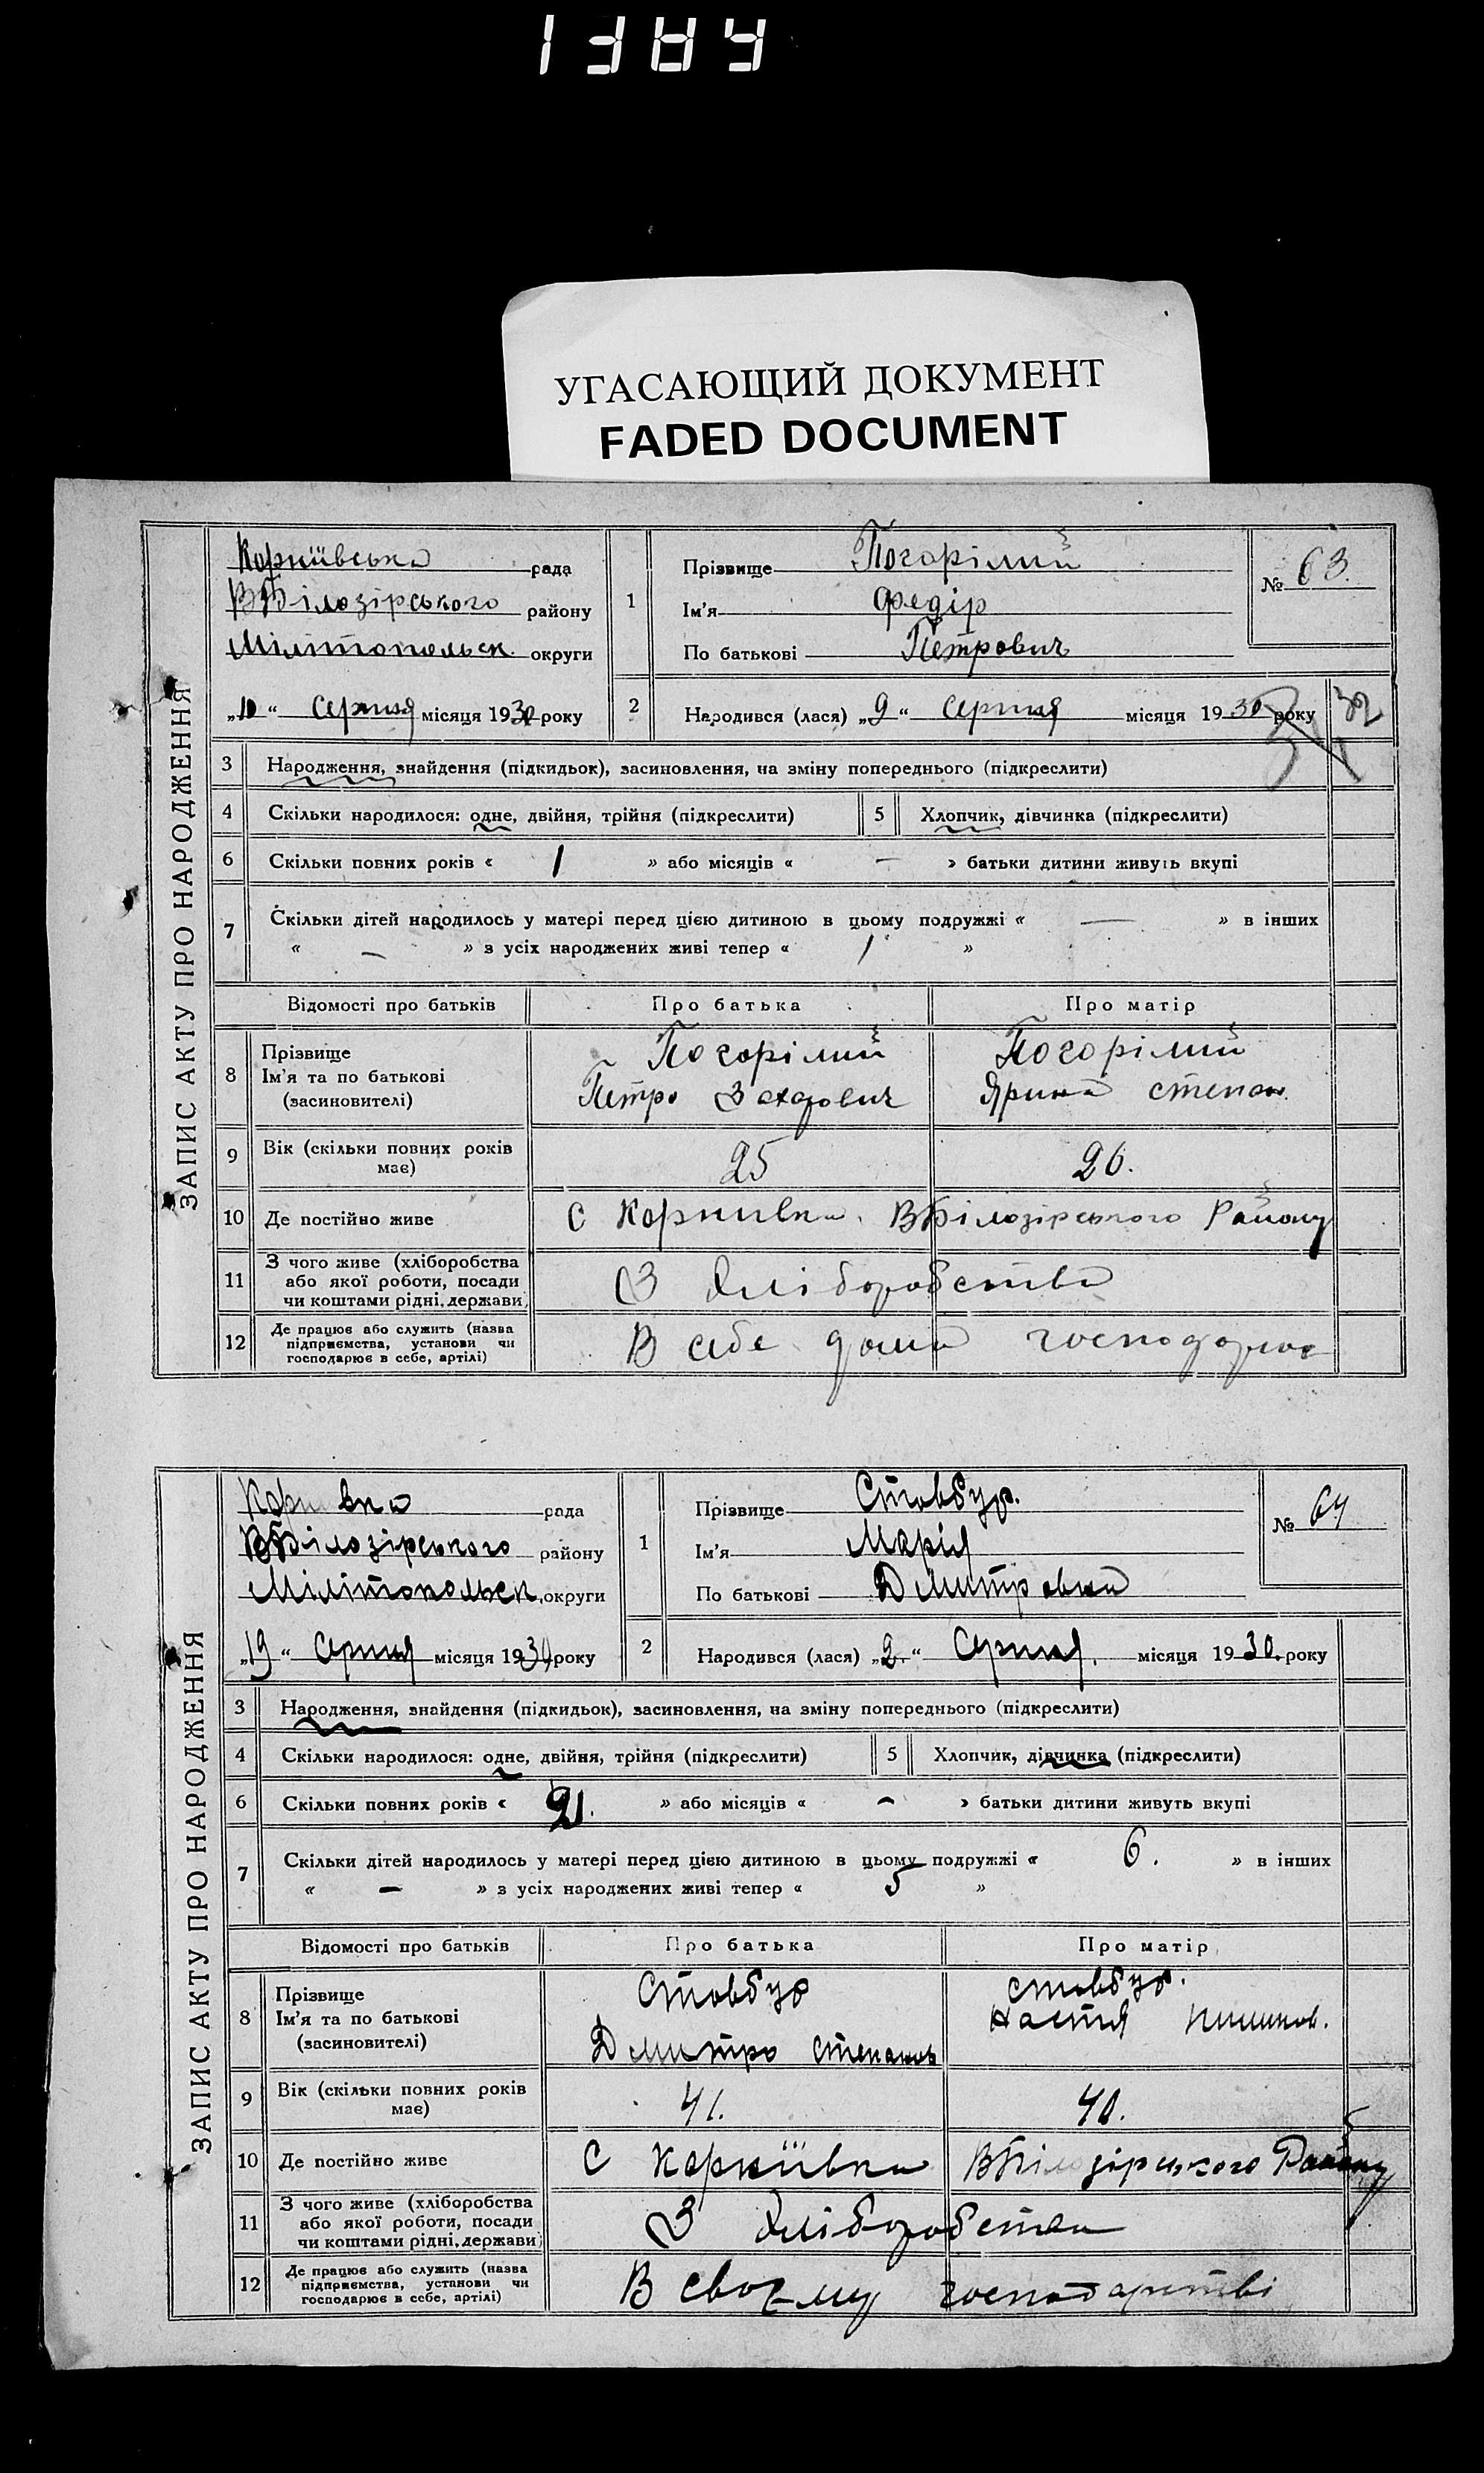 УГАСАЮЩИЙ ДОКУМЕНТ
FADED DOCUMENT
ЗАПИС АКТУ ПРО НАРОДЖЕННЯ
Корніївська рада
ВБілозірського району
Мілітопольск. округи
„10“ Серпня місяця 1930 року
1
Прізвище Погорілий
Ім'я Федір
По батькові Петрович
№ 63.
2
Народився (лася) „9“ Серпня місяця 1930 року
3 Народження, знайдення (підкидьок), засиновлення, на зміну попереднього (підкреслити)
4 Скільки народилося: одне, двійня, трійня (підкреслити) 5 Хлопчик, дівчинка (підкреслити)
6 Скільки повних років « 1 » або місяців « — » батьки дитини живуть вкупі
7 Скільки дітей народилось у матері перед цією дитиною в цьому подружжі « — » в інших
« — » з усіх народжених живі тепер « 1 »
Відомості про батьків Про батька Про матір
8 Прізвище Погорілий Погорілий
Ім'я та по батькові Петро Захарович Ярина степан.
(засиновителі)
9 Вік (скільки повних років 25 26.
має)
10 Де постійно живе С Корниївка. ВБілозірського Району
11 З чого живе (хліборобства
або якої роботи, посади З хліборобства
чи коштами рідні, держави)
12 Де працює або служить (назва
підприємства, установи чи В себе дома
господарює в себе, артілі)
ЗАПИС АКТУ ПРО НАРОДЖЕННЯ
рада
ВБілозірського району
Мілітопольск. округи
„19“ Серпня місяця 1930 року
1
Прізвище Стовбур.
Ім'я Марія
По батькові Дмитровна
№ 64
2
Народився (лася) „2.“ Серпня. місяця 1930. року
3 Народження, знайдення (підкидьок), засиновлення, на зміну попереднього (підкреслити)
4 Скільки народилося: одне, двійня, трійня (підкреслити) 5 Хлопчик, дівчинка (підкреслити)
6 Скільки повних років « 21. » або місяців « — » батьки дитини живуть вкупі
7 Скільки дітей народилось у матері перед цією дитиною в цьому подружжі « 6. » в інших
« — » з усіх народжених живі тепер « 5 »
Відомості про батьків Про батька Про матір
8 Прізвище Стовбур стовбур.
Ім'я та по батькові Дмитро степанов Настя
(засиновителі)
9 Вік (скільки повних років 41. 40.
має)
10 Де постійно живе С Корніївка ВБілозірського Району
11 З чого живе (хліборобства
або якої роботи, посади З хліборобства
чи коштами рідні, держави)
12 Де працює або служить (назва
підприємства, установи чи В своєму господарстві
господарює в себе, артілі)